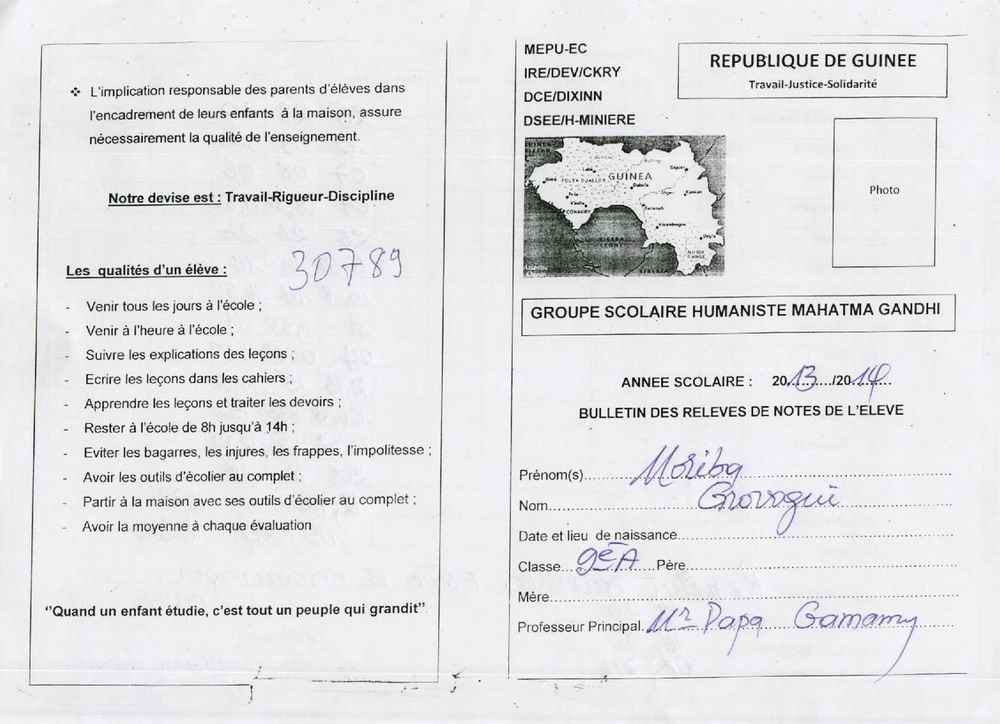 ❖ L'implication responsable des parents d'élèves dans
l'encadrement de leurs enfants à la maison, assure
nécessairement la qualité de l'enseignement.
Notre devise est : Travail-Rigueur-Discipline
30789
Les qualités d'un élève :
- Venir tous les jours à l'école ;
- Venir à l'heure à l'école ;
- Suivre les explications des leçons ;
- Ecrire les leçons dans les cahiers ;
- Apprendre les leçons et traiter les devoirs ;
- Rester à l'école de 8h jusqu'à 14h ;
- Eviter les bagarres, les injures, les frappes, l'impolitesse ;
- Avoir les outils d'écolier au complet ;
- Partir à la maison avec ses outils d'écolier au complet ;
- Avoir la moyenne à chaque évaluation
''Quand un enfant étudie, c'est tout un peuple qui grandit''
MEPU-EC
IRE/DEV/CKRY
DCE/DIXINN
DSEE/H-MINIERE
REPUBLIQUE DE GUINEE
Travail-Justice-Solidarité
GUINEA
Photo
GROUPE SCOLAIRE HUMANISTE MAHATMA GANDHI
ANNEE SCOLAIRE : 2013/2014
BULLETIN DES RELEVES DE NOTES DE L'ELEVE
Prénom(s) Moriba
Nom Grovogui
Date et lieu de naissance
Classe 9e A Père
Mère
Professeur Principal Mr Papa Gamamy